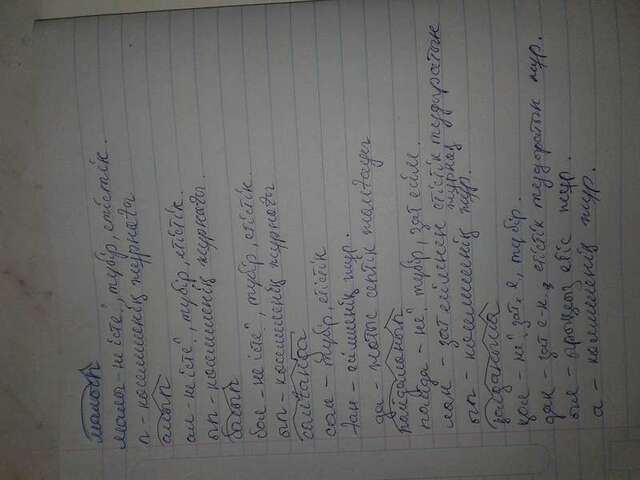 малып
малы - не істе?, түбір, етістік.
п - көсемшенің жұрнағы
алып
ал - не істе?, түбір, етістік.
ып - көсемшенің жұрнағы.
болып
бол - не істе?, түбір, етістік.
ып - көсемшенің жұрнағы
салғанда
сал - түбір, етістік
ған - есімшенің жұр.
да - жатыс септік жалғауы
пайдаланып
пайда - не? түбір, зат есім.
лан - зат есімнен етістік тудыратын
жұрнақ
ып - көсемшенің жұр.
қолданыла
қол - не?, зат. е, түбір.
дан - зат е-н, етістік тудыратын жұр.
ыл - ырықсыз етіс жұр.
а - көсемшенің жұр.